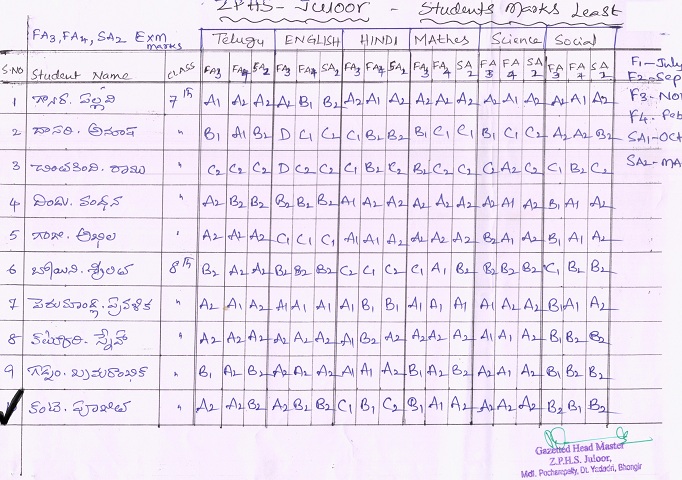 ZPHS - Juloor - Students Marks Least
FA3, FA4, SA2 Exm marks
Telugu ENGLISH HINDI MAthes Science Social
S.NO Student Name CLASS FA3 FA4 SA2 FA3 FA4 SA2 FA3 FA4 SA2 FA3 FA4 SA2 FA3 FA4 SA2 FA3 FA4 SA2
F1 - July
F2 - Sep
F3 - Nov
F4 - Feb
SA1 - Oct
SA2 - MA
1 పల్లవి 7th A1 A2 A2 A2 B1 B2 A2 A1 A2 A2 A1 A2 A2 A1 A2 A2 A1 A2
2 దాసరి. అనూష " B1 A1 B2 D C1 C2 C1 B2 B2 B1 C1 C1 B1 C1 C2 A2 A2 B2
3 రాజు " C2 C2 C2 D C2 C2 C1 B2 C2 B2 C2 C2 C2 A2 C2 C1 B2 C2
4 " A2 B2 B2 B2 B2 B2 A1 A2 A2 A2 A2 A2 A2 A1 A2 B1 A1 A2
5 అఖిల " A2 A2 A2 C1 C1 C1 A1 A1 A2 A2 A2 A2 B2 A1 A2 B1 A1 A2
6 8th B2 A2 A2 B2 B2 B2 C2 C1 C2 C1 A1 B2 B2 B2 B2 C1 B2 B2
7 " A2 A1 A2 A1 A1 A1 A1 B1 B1 A1 A1 A1 A1 A2 A2 B1 A1 A2
8 స్నేహ " A2 A2 A2 A2 A2 A2 A1 B2 A2 A2 A2 A2 A1 A1 A2 B2 B2 B2
9 గడ్డం. " B1 A2 B2 A2 A2 A2 A1 A1 A2 B1 A2 B2 A2 A1 A2 B1 B2 B2
కంటె. పూజిత " A2 A2 B2 A2 B2 B2 C1 B1 C2 B1 A1 A2 A2 A2 A2 B2 B1 B2
Gazetted Head Master
Z.P.H.S. Juloor,
Mdl. Pochampally, Dt. Yadadri, Bhongir